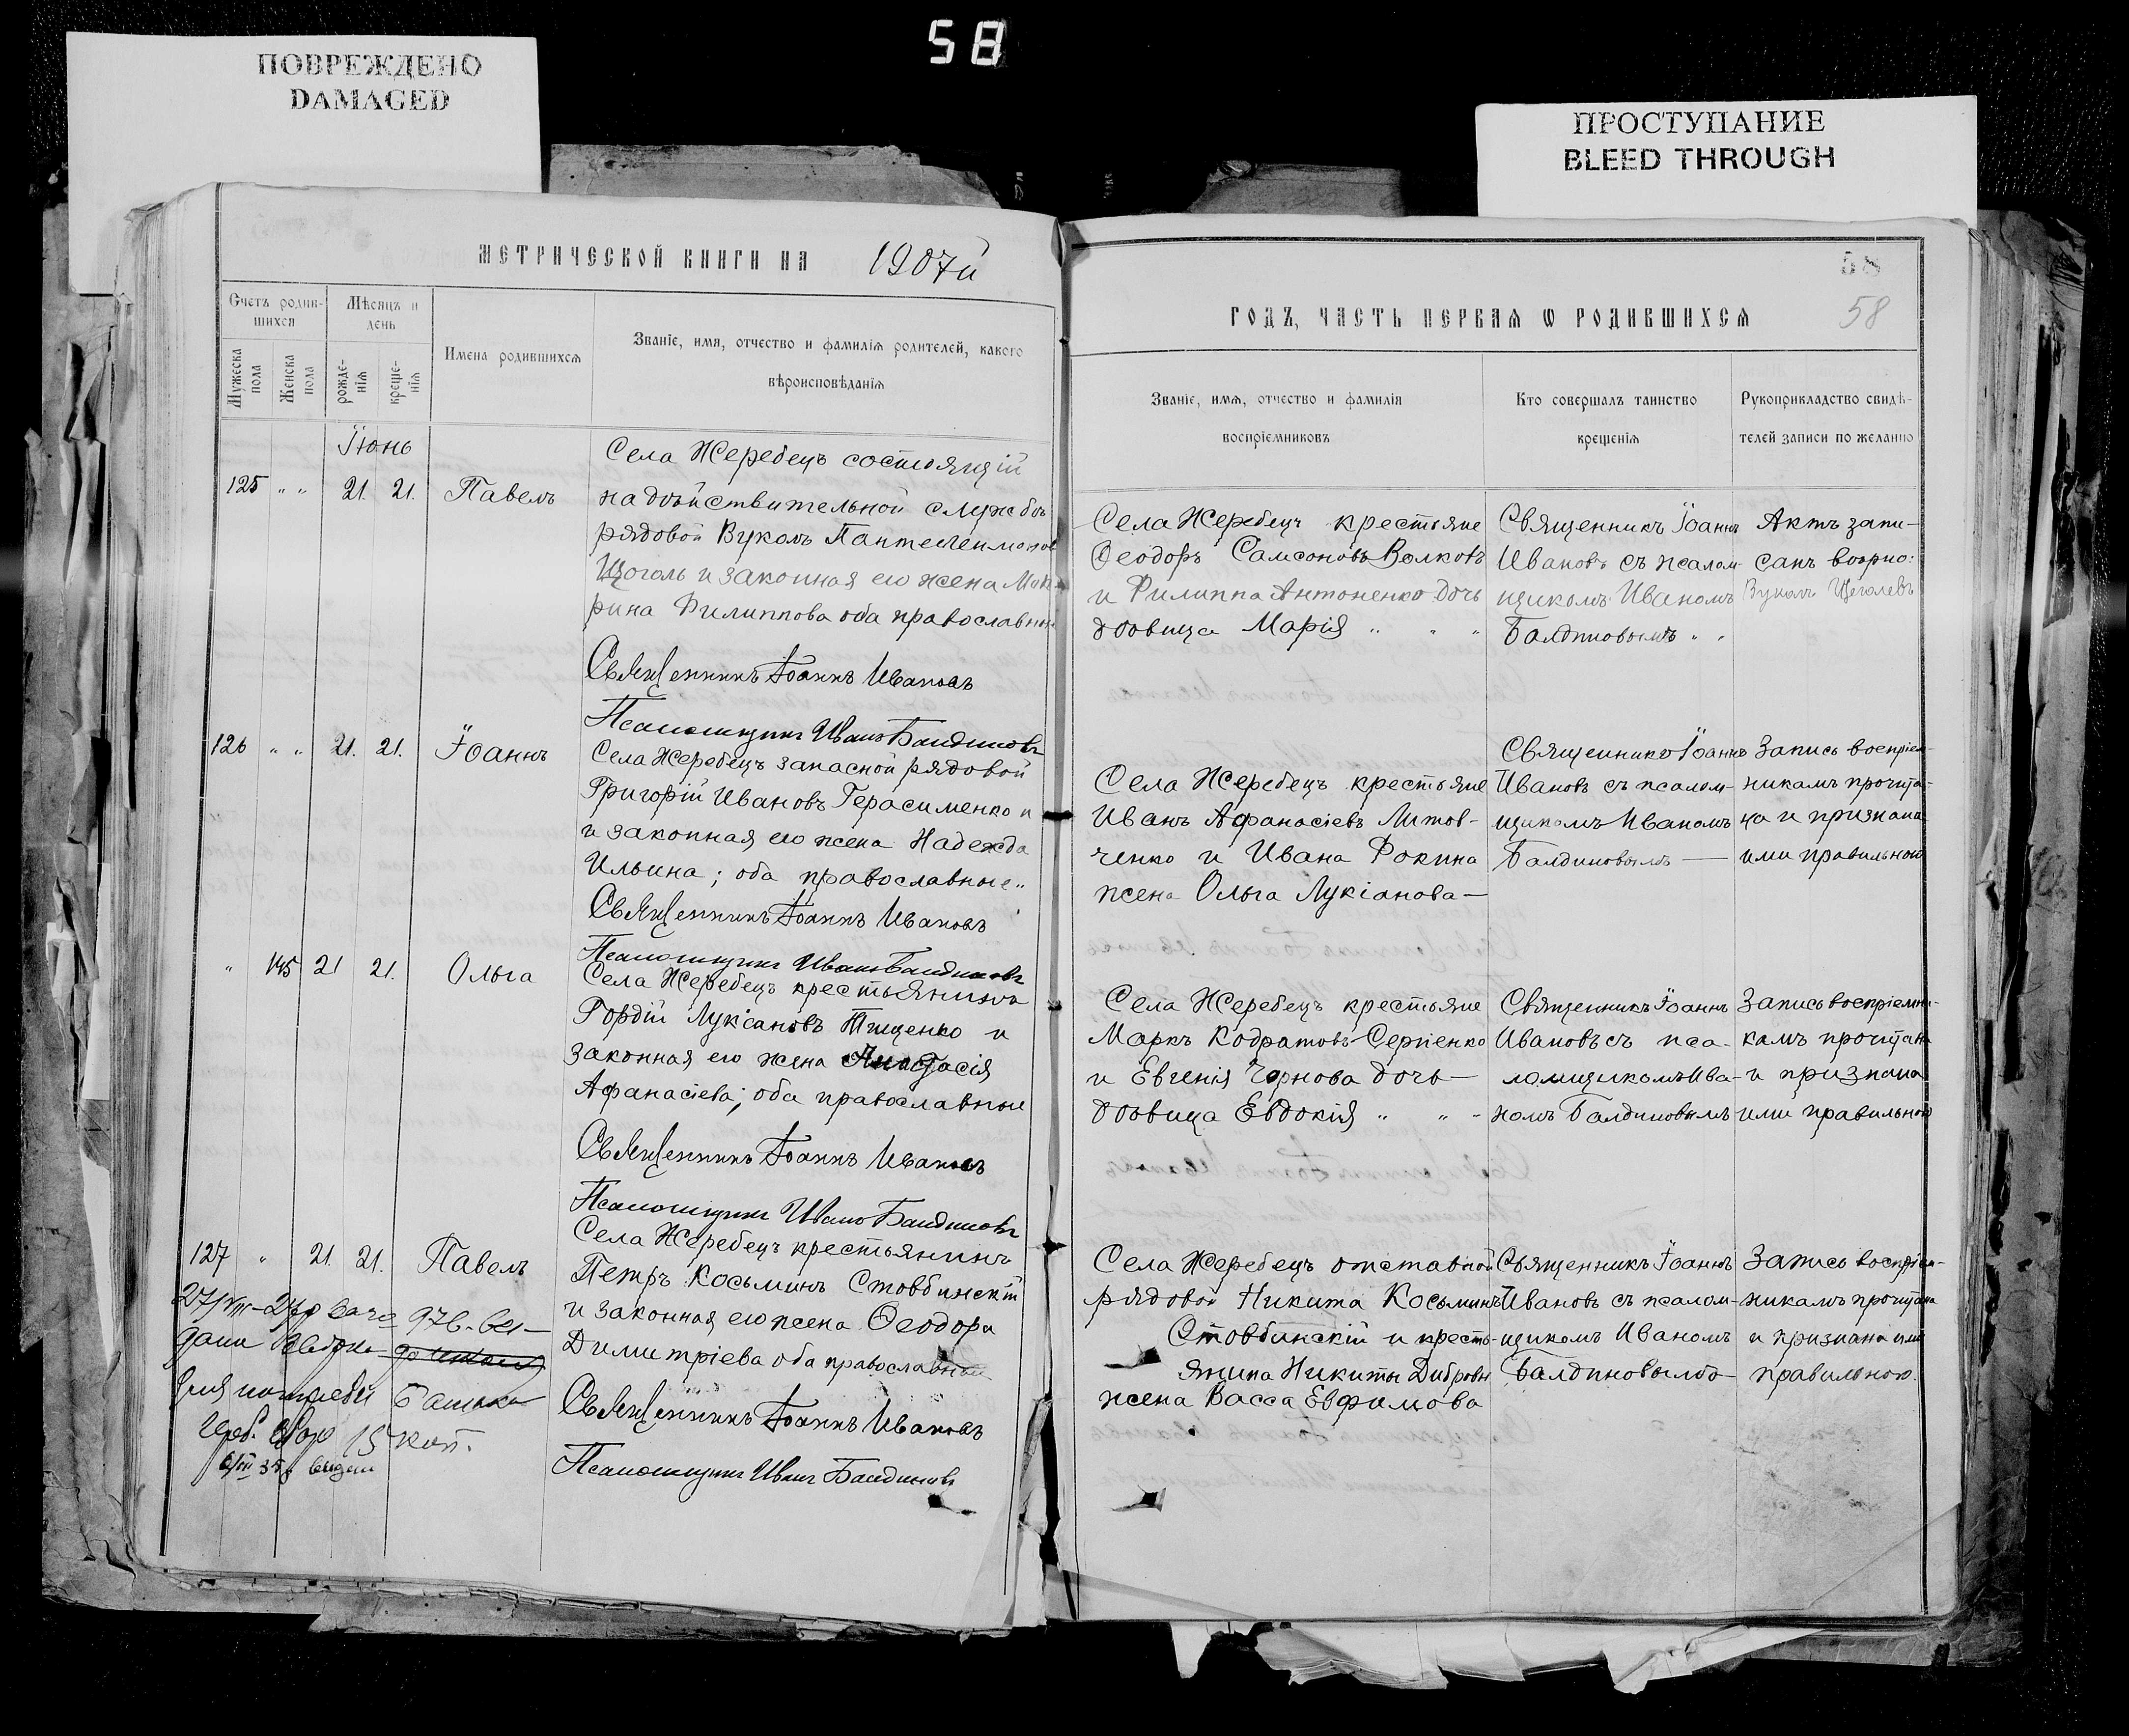 58
ПОВРЕЖДЕНО
DAMAGED
ПРОСТУПАНИЕ
BLEED THROUGH
МЕТРИЧЕСКОЙ КНИГИ НА 1907й
Счетъ родив-
шихся
Мѣсяцъ и
день
Мужеска
пола
Женска
пола
рожде-
нія
креще-
нія
Имена родившихся
Званіе, имя, отчество и фамилія родителей, какого
вѣроисповѣданія
Іюнь
125 " " 21. 21. Павелъ
Села Жеребецъ состоящій
на дѣйствительной службѣ
рядовой Вуколъ Пантелеимонов
Щоголь и законная его жена Мок
рина Филиппова оба православные
Священникъ Іоаннъ Ивановъ
Псаломщикъ Иванъ Балдиновъ
126 " " 21. 21. Іоаннъ
Села Жеребецъ запасной рядовой
Григорій Ивановъ Герасименко и
и законная его жена Надежда
Ильина; оба православные "
Священникъ Іоаннъ Ивановъ
Псаломщикъ Иванъ Балдиновъ
" 145 21 21. Ольга
Села Жеребецъ крестьянинъ
Гордій Лукіановъ Тищенко и
законная его жена Анастасія
Афанасіева; оба православные
Священникъ Іоаннъ Ивановъ
Псаломщикъ Иванъ Балдиновъ
127 " 21. 21. Павелъ
Села Жеребецъ крестьянинъ
Петръ Косьминъ Стовбинскій
и законная его жена Ѳеодора
Димитріева оба православные
Священникъ Іоаннъ Ивановъ
Псаломщикъ Иванъ Балдиновъ
27/VIII
15 коп.
58
58
ГОДЪ, ЧАСТЬ ПЕРВАЯ Ѡ РОДИВШИХСЯ
Званіе, имя, отчество и фамилія
воспріемниковъ
Кто совершалъ таинство
крещенія
Рукоприкладство свидѣ-
телей записи по желанію
Села Жеребецъ крестьяне
Ѳеодоръ Самсоновъ Волковъ
и Филиппа Антоненко дочь
дѣвица Марія " " "
Священникъ Іоаннъ
Ивановъ съ псалом-
щикомъ Иваномъ
Балдиновымъ " "
Актъ запи-
санъ вѣрно:
Вуколъ Щеголевъ
Села Жеребецъ крестьяне
Иванъ Афанасіевъ Литов-
ченко и Ивана Фокина
жена Ольга Лукіанова—
Священникъ Іоаннъ
Ивановъ съ псалом-
щикомъ Иваномъ
Балдиновымъ —
Запись воспріем-
никамъ прочита-
на и признана
ими правильной
Села Жеребецъ крестьяне
Маркъ Кодратовъ Сергіенко
и Евгенія Чернова дочь—
дѣвица Евдокія " " "
Священникъ Іоаннъ
Ивановъ съ пса-
ломщикомъ Ива-
номъ Балдиновымъ
Запись воспріемни-
камъ прочитана
и признана
ими правильной
Села Жеребецъ отставной
рядовой Никита Косьминъ
Стовбинскій и кресть-
янина Никиты Дибровы
жена Васса Евфимова
Священникъ Іоаннъ
Ивановъ съ псалом-
щикомъ Иваномъ
Балдиновымъ—
Запись воспріем-
никамъ прочитана
и признана ими
правильною.